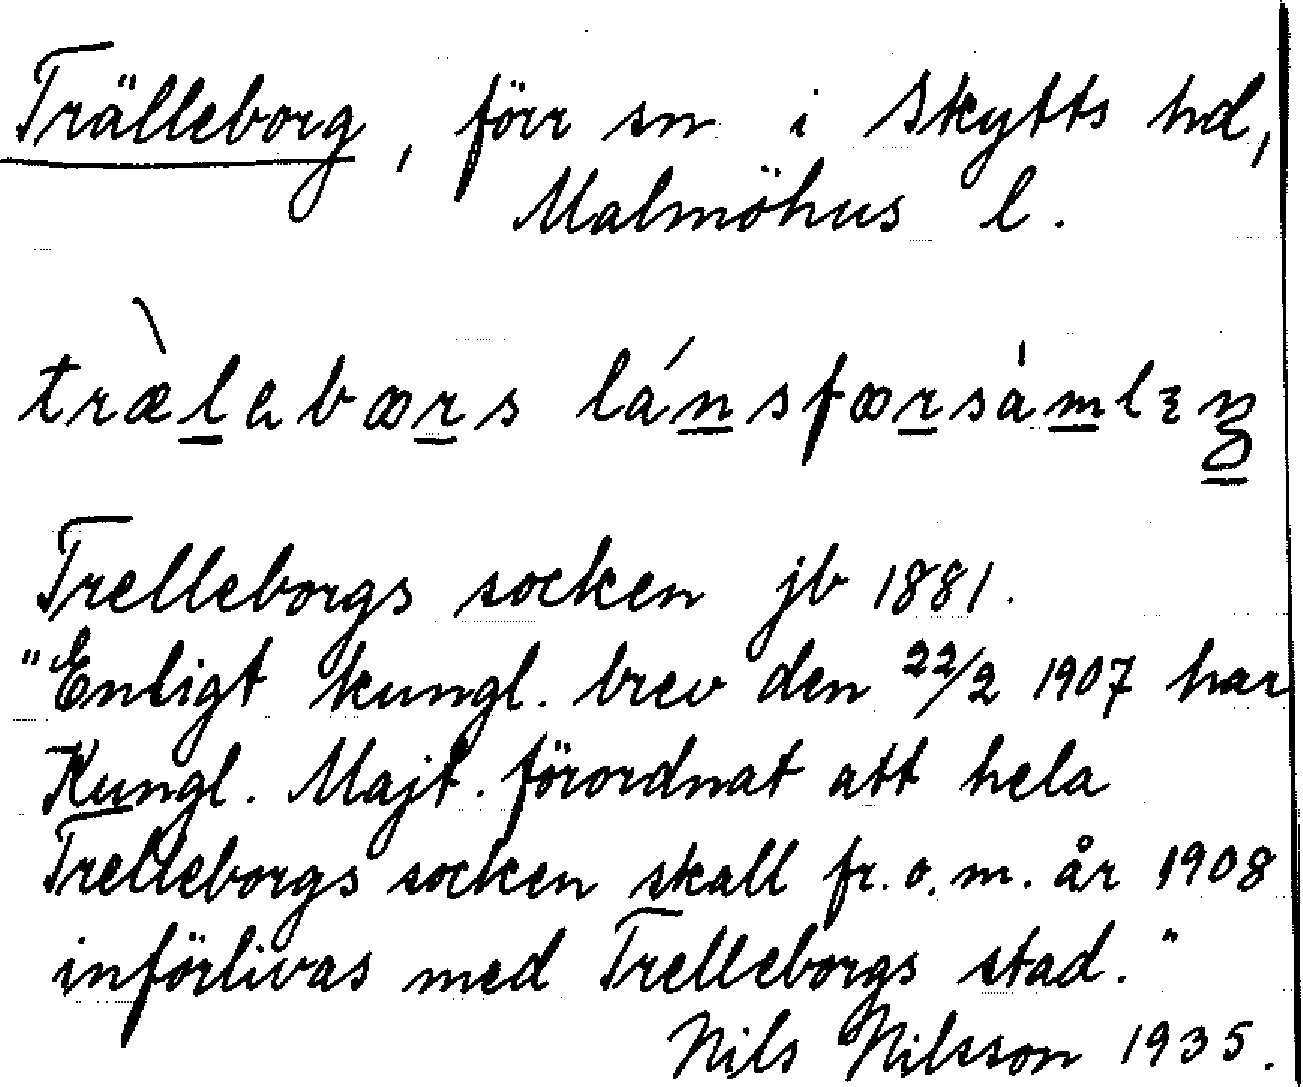 Trälleborg, förr sn i Skytts hd,
Malmöhus l.
træ̀lebœrs lánsfœrsàmlɛŋ
Trelleborgs socken jb 1881.
"Enligt kungl. brev den 22/2 1907 har
Kungl. Majt. förordnat att hela
Trelleborgs socken skall fr. o. m. år 1908
införlivas med Trelleborgs stad."
Nils Nilsson 1935.